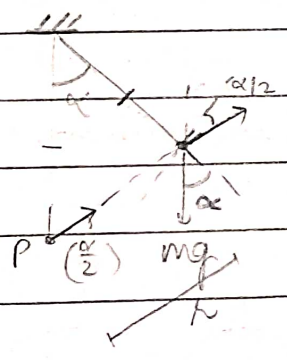 α
α/2
α
P
(α/2)
mg
r